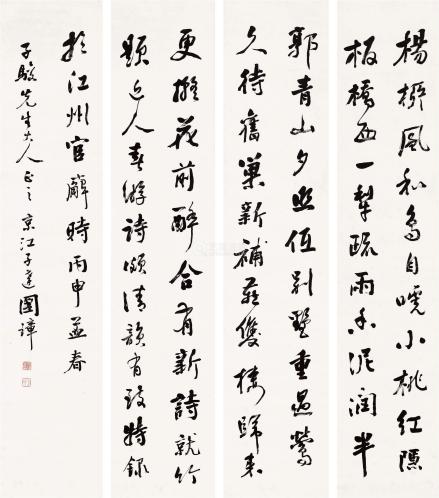 楊柳風和鳥自嗁小桃紅隱
板橋西一犁疏雨香泥潤半
郭青山夕照低別墅重過鶯
久待舊巢新補燕雙棲歸來
更擬花前醉合有新詩就竹
題近人春游詩頗清韻有致特錄
於江州官廨時丙申孟春
子駿先生大人正之 京江子璋